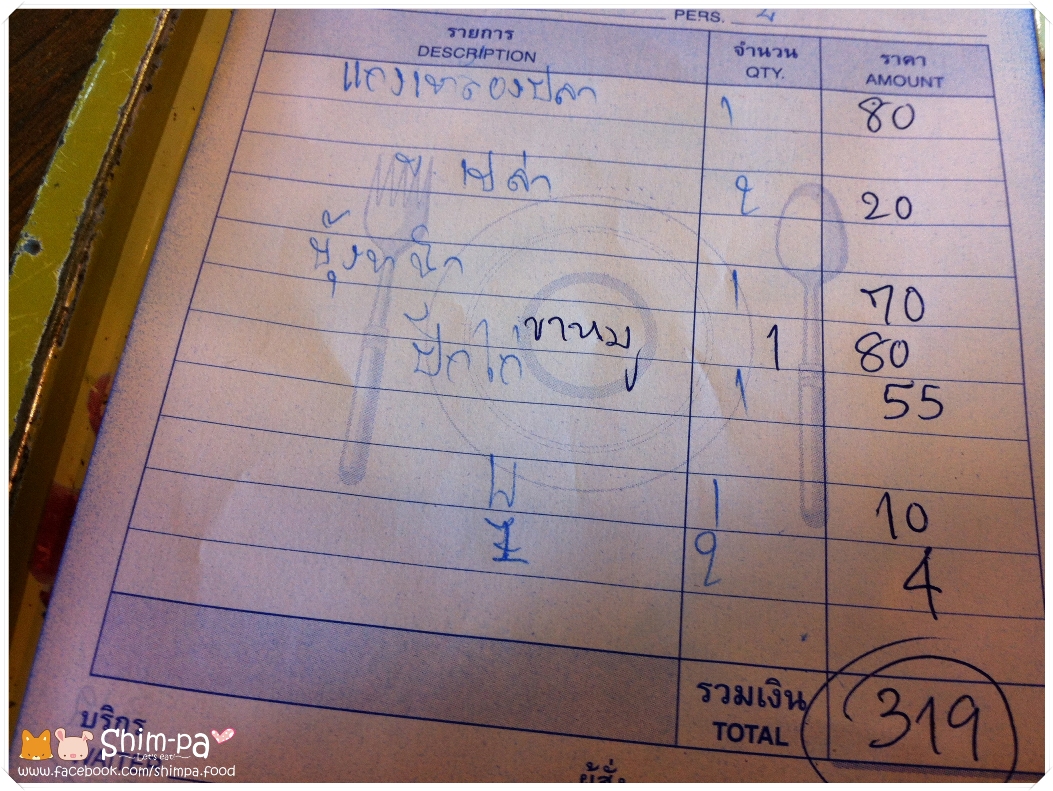 PERS. 2
รายการ จำนวน ราคา
DESCRIPTION QTY. AMOUNT
แกงเหลืองปลา 1 80
เปล่า 2 20
1 70
ขาหมู 1 80
ปีกไก่ 1 55
1 10
2 4
รวมเงิน 319
TOTAL
บริกร
Shim-pa
Let's eat!
www.facebook.com/shimpa.food
ผู้สั่ง